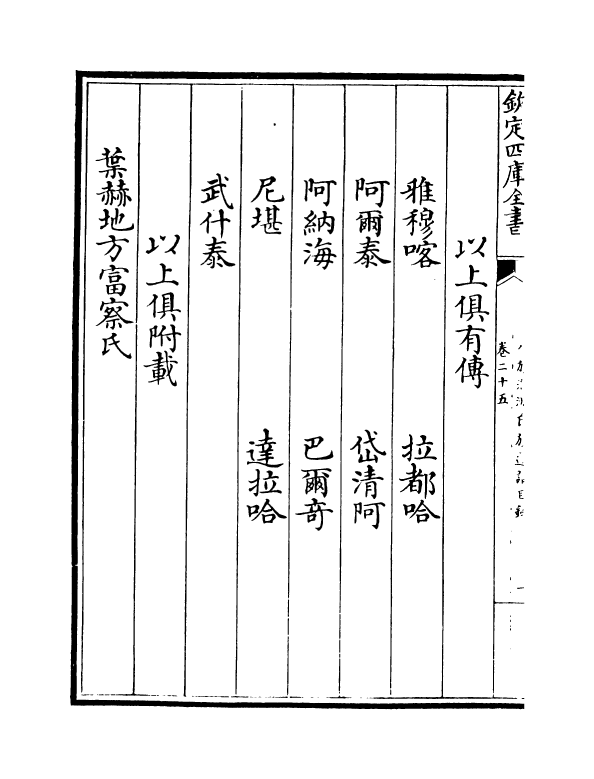 欽定四庫全書
卷二十五
以上俱有傳
雅穆喀 拉都哈
阿爾泰 岱清阿
阿納海 巴爾竒
尼堪 達拉哈
武什泰
以上俱附載
葉赫地方富察氏